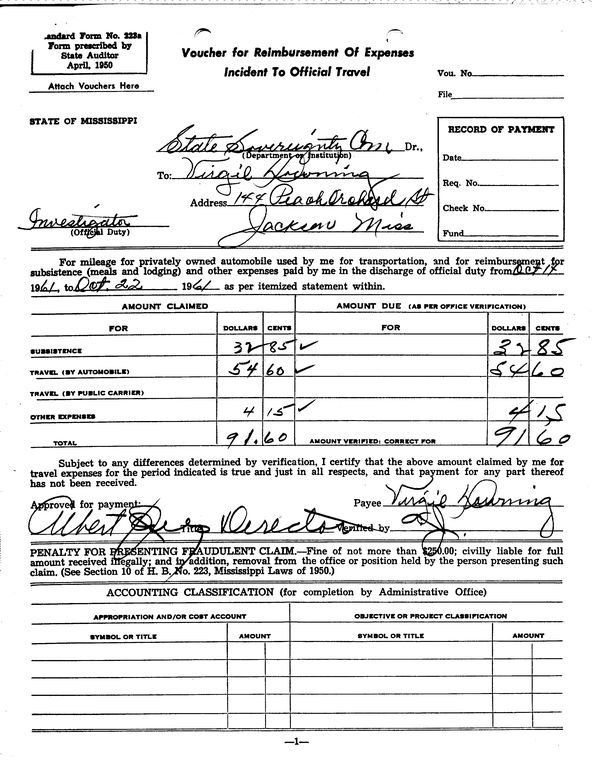 andard Form No. 223a
Form prescribed by
State Auditor
April, 1950
Attach Vouchers Here
Voucher for Reimbursement Of Expenses
Incident To Official Travel
Vou. No.
File
STATE OF MISSISSIPPI
State Sovereignty Com. Dr.,
(Department or Institution)
To: Virgil Downing
Address 144 Peach Orchard St
Jackson Miss
Investigator
(Official Duty)
RECORD OF PAYMENT
Date
Req. No.
Check No.
Fund
For mileage for privately owned automobile used by me for transportation, and for reimbursement for
subsistence (meals and lodging) and other expenses paid by me in the discharge of official duty from Oct 17
1961, to Oct. 22 1961 as per itemized statement within.
AMOUNT CLAIMED AMOUNT DUE (AS PER OFFICE VERIFICATION)
FOR DOLLARS CENTS FOR DOLLARS CENTS
SUBSISTENCE 32 85 ✓ 32 85
TRAVEL (BY AUTOMOBILE) 54 60 ✓ 54 60
TRAVEL (BY PUBLIC CARRIER)
OTHER EXPENSES 4 15 ✓ 4 15
TOTAL 91.60 AMOUNT VERIFIED: CORRECT FOR 91 60
Subject to any differences determined by verification, I certify that the above amount claimed by me for
travel expenses for the period indicated is true and just in all respects, and that payment for any part thereof
has not been received.
Approved for payment: Payee Virgil Downing
Albert Director Verified by
PENALTY FOR PRESENTING FRAUDULENT CLAIM.—Fine of not more than $250.00; civilly liable for full
amount received illegally; and in addition, removal from the office or position held by the person presenting such
claim. (See Section 10 of H. B. No. 223, Mississippi Laws of 1950.)
ACCOUNTING CLASSIFICATION (for completion by Administrative Office)
APPROPRIATION AND/OR COST ACCOUNT OBJECTIVE OR PROJECT CLASSIFICATION
SYMBOL OR TITLE AMOUNT SYMBOL OR TITLE AMOUNT
—1—